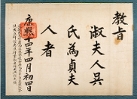 教旨
淑夫人吳
氏爲貞夫
人者
康熙十四年四月初四日